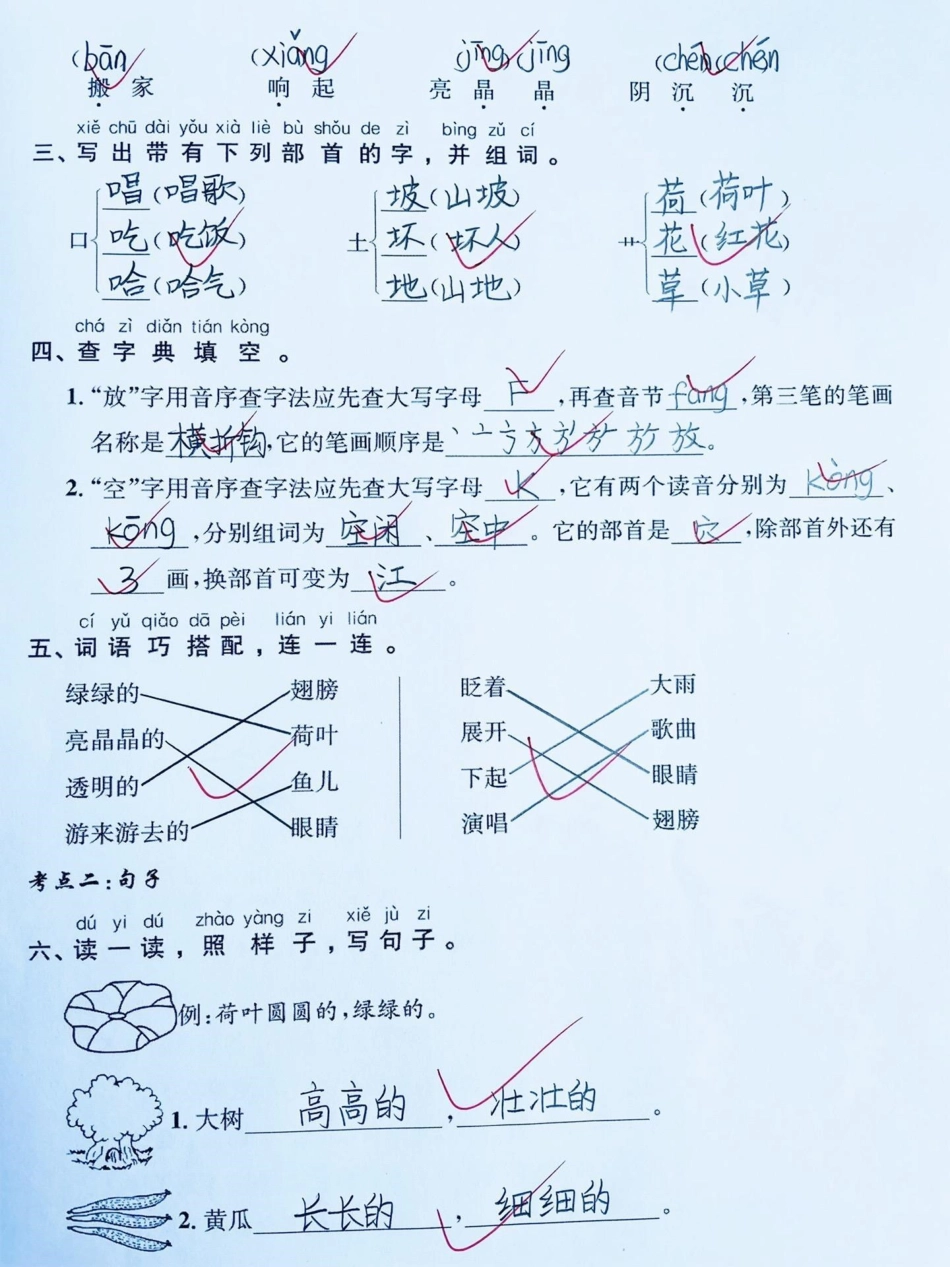 (bān (xiǎng (jīng)(jīng (chén)(chén
搬 家 响 起 亮 晶 晶 阴 沉 沉
xiě chū dài yǒu xià liè bù shǒu de zì bìng zǔ cí
三、写出带有下列部首的字,并组词。
唱(唱歌) 坡(山坡) 荷(荷叶)
口 吃(吃饭) 土 坏(坏人) 艹 花(红花)
哈(哈气) 地(山地) 草(小草)
chá zì diǎn tián kòng
四、查字典填空。
1.“放”字用音序查字法应先查大写字母F,再查音节fàng,第三笔的笔画
名称是横折钩,它的笔画顺序是丶亠方放。
2.“空”字用音序查字法应先查大写字母K,它有两个读音分别为kòng、
kōng,分别组词为空闲、空中。它的部首是穴,除部首外还有
3画,换部首可变为江。
cí yǔ qiǎo dā pèi lián yi lián
五、词语巧搭配,连一连。
绿绿的 翅膀 眨着 大雨
亮晶晶的 荷叶 展开 歌曲
透明的 鱼儿 下起 眼睛
游来游去的 眼睛 演唱 翅膀
考点二:句子
dú yi dú zhào yàng zi xiě jù zi
六、读一读,照样子,写句子。
例:荷叶圆圆的,绿绿的。
1.大树高高的,壮壮的。
2.黄瓜长长的,细细的。